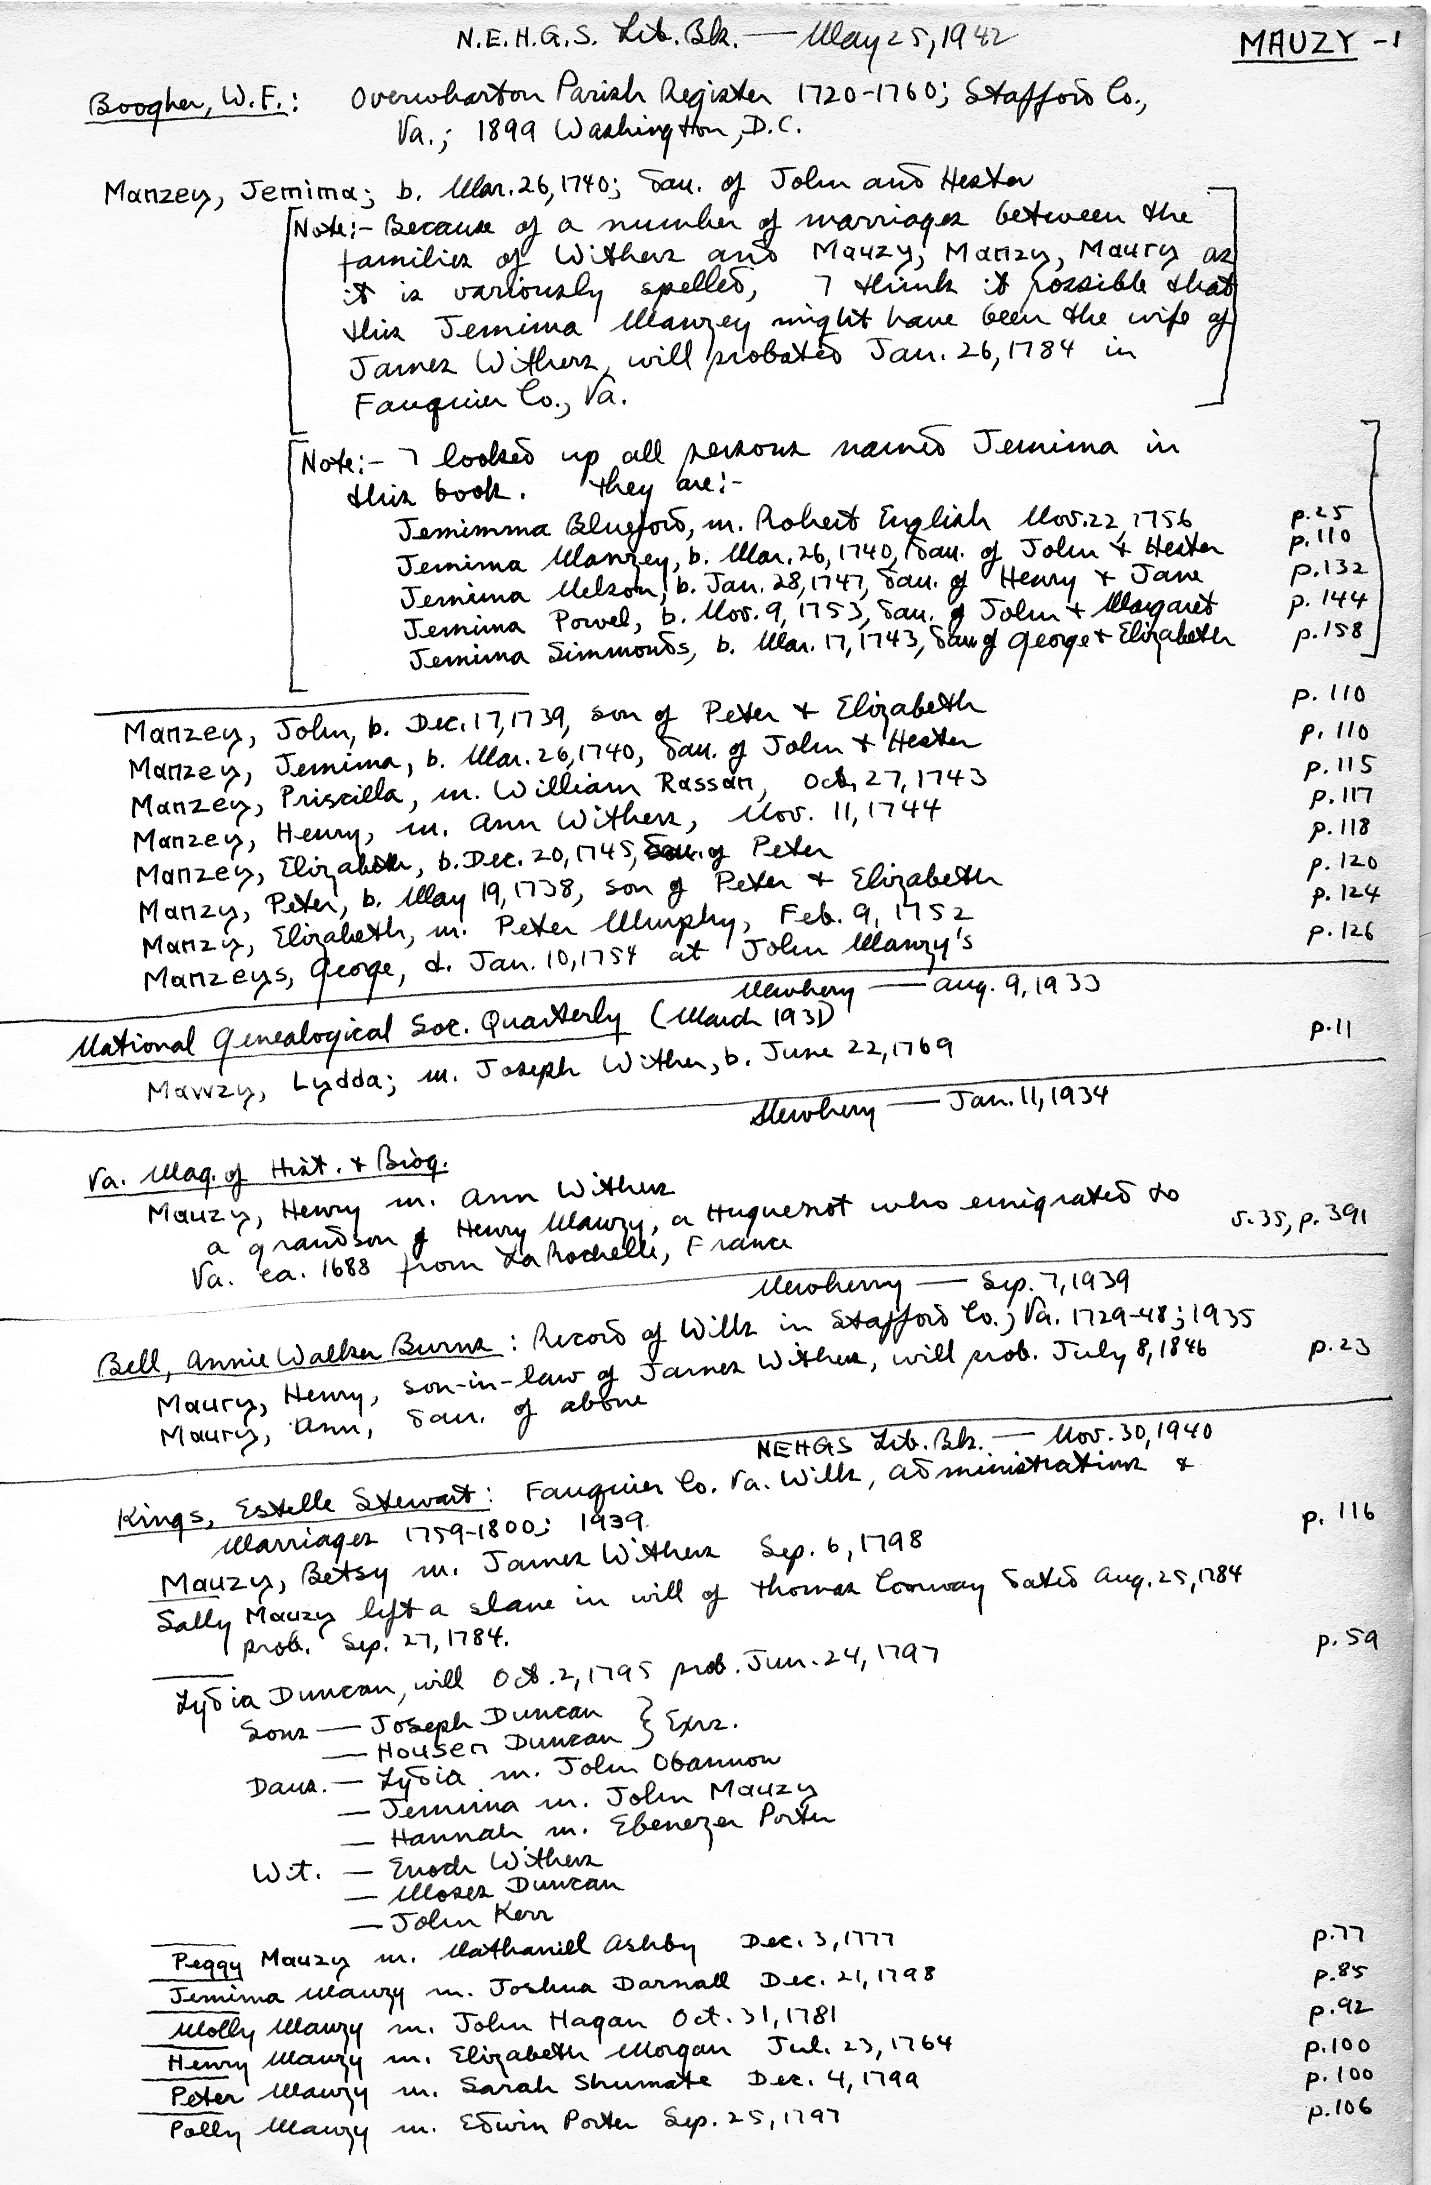 N.E.H.G.S. Lib. Bk. — May 25, 1942
MAUZY - 1
Boogher, W.F.: Overwharton Parish Register 1720-1760; Stafford Co.,
Va.; 1899 Washington, D.C.
Manzey, Jemima; b. Mar. 26, 1740; dau. of John and Hester
[Note:- Because of a number of marriages between the
families of Withers and Mauzy, Manzy, Maury as
it is variously spelled, I think it possible that
this Jemima Manzey might have been the wife of
James Withers, will probated Jan. 26, 1784 in
Fauquier Co., Va.]
[Note:- I looked up all persons named Jemima in
this book. They are:-
Jemimma Blueford, m. Robert English Nov. 22, 1756 p. 25
Jemima Manzey, b. Mar. 26, 1740, dau. of John + Hester p. 110
Jemima Nelson, b. Jan. 28, 1747, dau. of Henry + Jane p. 132
Jemima Powel, b. Nov. 9, 1753, dau. of John + Margaret p. 144
Jemima Simmonds, b. Mar. 17, 1743, dau of George + Elizabeth p. 158]
Manzey, John, b. Dec. 17, 1739, son of Peter + Elizabeth p. 110
Manzey, Jemima, b. Mar. 26, 1740, dau. of John + Hester p. 110
Manzey, Priscilla, m. William Rassan, Oct. 27, 1743 p. 115
Manzey, Henry, m. Ann Withers, Nov. 11, 1744 p. 117
Manzey, Elizabeth, b. Dec. 20, 1745, dau. of Peter p. 118
Manzy, Peter, b. May 19, 1738, son of Peter + Elizabeth p. 120
Manzy, Elizabeth, m. Peter Murphy, Feb. 9, 1752 p. 124
Manzeys, George, d. Jan. 10, 1754 at John Manzy's p. 126
Newbery — Aug. 9, 1933
National Genealogical Soc. Quarterly (March 1931)
Mavvzy, Lydda; m. Joseph Wither, b. June 22, 1769 p. 11
Newbery — Jan. 11, 1934
Va. Mag. of Hist. + Biog.
Mauzy, Henry m. Ann Withers
a grandson of Henry Mauzy, a Huguenot who emigrated to
Va. ca. 1688 from La Rochelle, France v. 35, p. 391
Newberry — Sep. 7, 1939
Bell, Annie Walker Burns: Record of Wills in Stafford Co., Va. 1729-48; 1935
Maury, Henry, son-in-law of James Withers, will prob. July 8, 1846 p. 23
Maury, Ann, dau. of above
NEHGS Lib. Bk. — Nov. 30, 1940
Kings, Estelle Stewart: Fauquier Co. Va. Wills, Administrations +
Marriages 1759-1800; 1939
Mauzy, Betsy m. James Withers Sep. 6, 1798 p. 116
Sally Mauzy left a slave in will of Thomas Conway dated Aug. 25, 1784
prob. Sep. 27, 1784.
Lydia Duncan, will Oct. 2, 1795 prob. Jun. 24, 1797 p. 59
Sons — Joseph Duncan } Exrs.
— Housen Duncan
Daus. — Lydia m. John Obannon
— Jemima m. John Mauzy
— Hannah m. Ebenezer Porter
Wit. — Enoch Withers
— Moses Duncan
— John Kerr
Peggy Mauzy m. Nathaniell Ashby Dec. 3, 1777 p. 77
Jemima Mauzy m. Joshua Darnall Dec. 21, 1798 p. 85
Molly Mauzy m. John Hagan Oct. 31, 1781 p. 92
Henry Mauzy m. Elizabeth Morgan Jul. 23, 1764 p. 100
Peter Mauzy m. Sarah Shumate Dec. 4, 1799 p. 100
Polly Mauzy m. Edwin Porter Sep. 25, 1797 p. 106